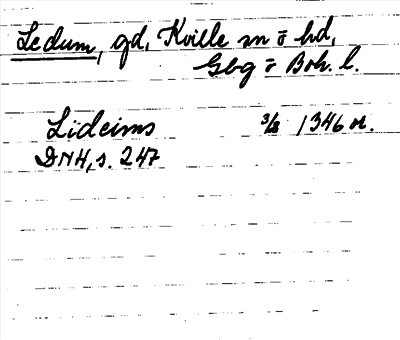 Ledum, gd, Kville sn o hd,
Gbg o Boh. l.
Lideims 3/8 1346 or.
DNH, s. 247